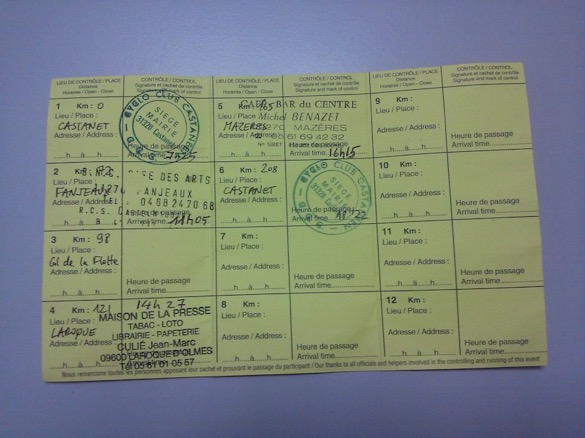 LIEU DE CONTRÔLE / PLACE
Distance
Horaires / Open - Close
CONTRÔLE / CONTROL
Signature et cachet de contrôle
Signature and mark of control
LIEU DE CONTRÔLE / PLACE
Distance
Horaires / Open - Close
CONTRÔLE / CONTROL
Signature et cachet de contrôle
Signature and mark of control
LIEU DE CONTRÔLE / PLACE
Distance
Horaires / Open - Close
CONTRÔLE / CONTROL
Signature et cachet de contrôle
Signature and mark of control
1 Km : 0
Lieu / Place :
CASTANET
Adresse / Address :
h à h
CYCLO CLUB CASTANET
SIEGE
MAIRIE
7h25
2 Km
Lieu / Place :
FANJEAUX
Adresse / Address :
h à h
DES ARTS
ANJEAUX
04 68 24 70 68
R.C.S.
Arrival time 11h05
3 Km : 98
Lieu / Place :
Col de la Flotte
Adresse / Address :
h à h
Heure de passage
Arrival time
4 Km : 121
Lieu / Place :
LAROQUE
Adresse / Address :
h à h
14h27
MAISON DE LA PRESSE
TABAC - LOTO
LIBRAIRIE - PAPETERIE
CULIÉ Jean-Marc
09600 LAROQUE D'OLMES
Tél 05 61 01 05 57
5 Km : 165
Lieu / Place :
MAZERES
Adresse / Address :
h à h
BAR du CENTRE
Michel BENAZET
MAZÈRES
05 61 69 42 32
Arrival time 16h15
6 Km : 208
Lieu / Place :
CASTANET
Adresse / Address :
h à h
CYCLO CLUB CASTANET
SIEGE
MAIRIE
Heure de passage
Arrival time 18h22
7 Km :
Lieu / Place :
Adresse / Address :
h à h
Heure de passage
Arrival time
8 Km :
Lieu / Place :
Adresse / Address :
h à h
Heure de passage
Arrival time
9 Km :
Lieu / Place :
Adresse / Address :
h à h
Heure de passage
Arrival time
10 Km :
Lieu / Place :
Adresse / Address :
h à h
Heure de passage
Arrival time
11 Km :
Lieu / Place :
Adresse / Address :
h à h
Heure de passage
Arrival time
12 Km :
Lieu / Place :
Adresse / Address :
h à h
Heure de passage
Arrival time
Nous remercions toutes les personnes apposant leur cachet et prouvant le passage du participant / Our thanks to all officials and helpers involved in the controlling and running of this event